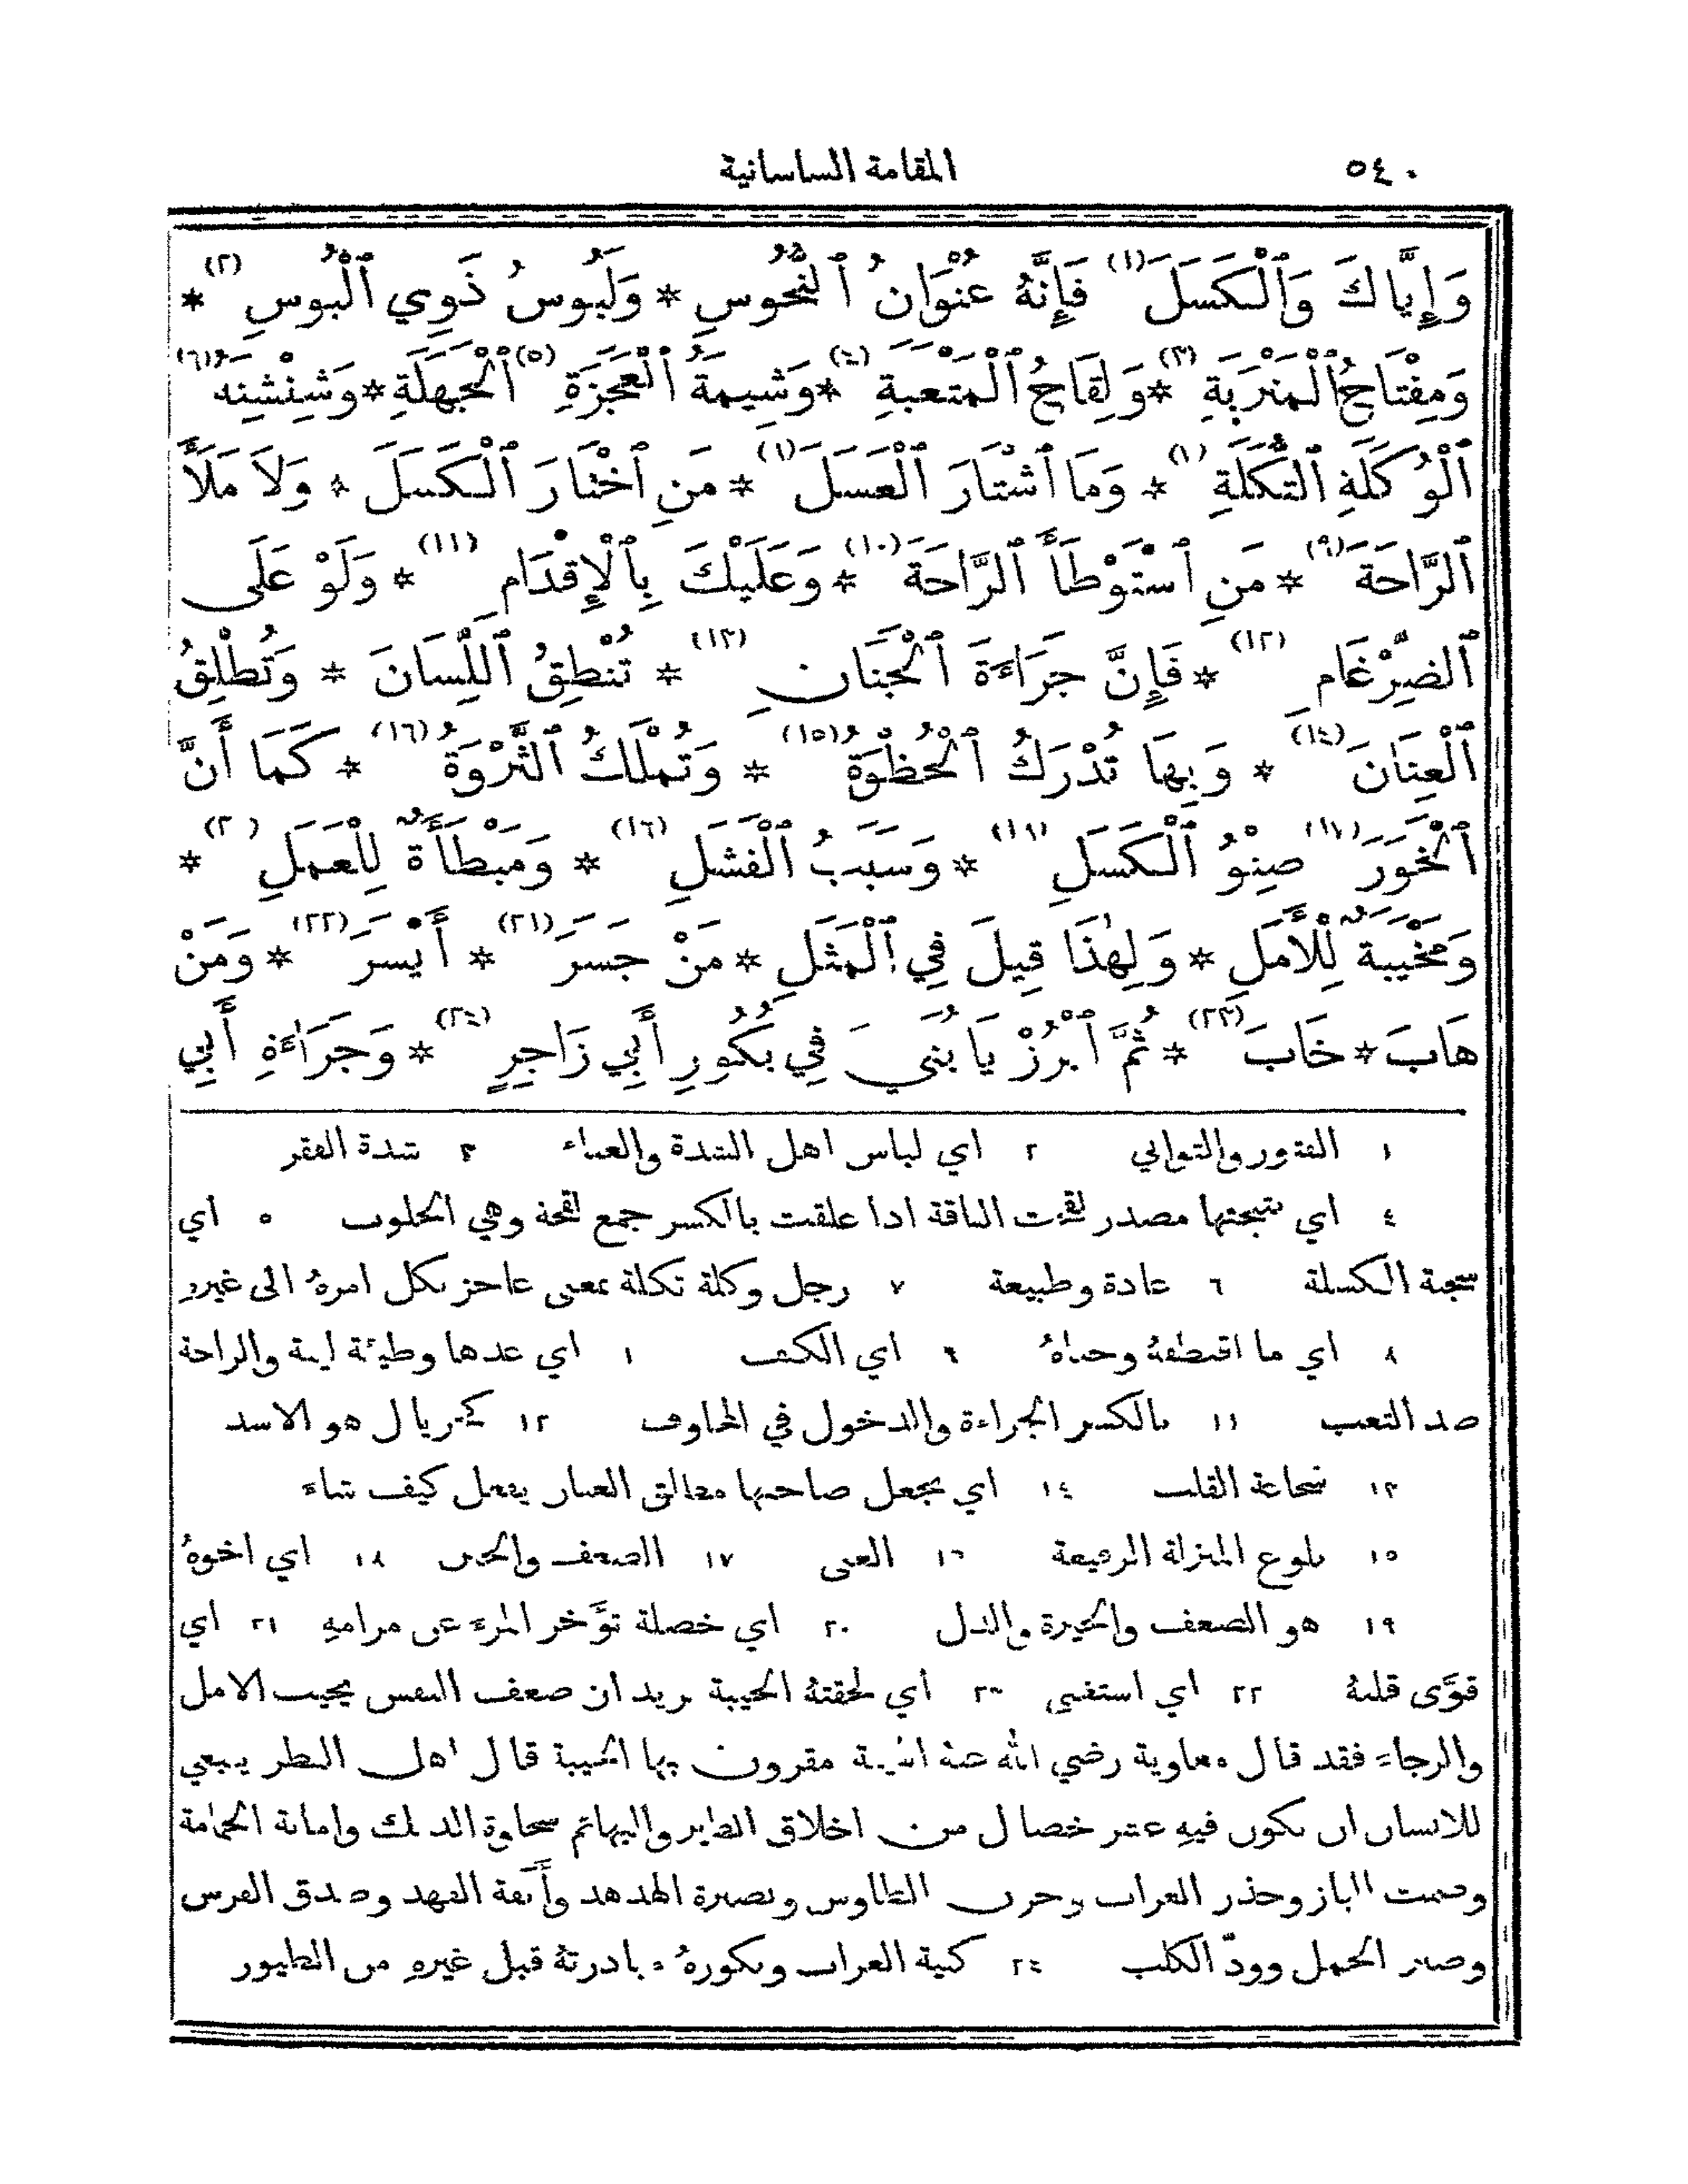 ٥٤٠ المقامة الساسانية
وَإِيَّاكَ وَٱلْكَسَلَ (١) فَإِنَّهُ عُنْوَانُ ٱلنُّحُوسِ * وَلَبُوسُ ذَوِي ٱلْبُوسِ (٢) *
وَمِفْتَاحُ ٱلْمَتْرَبَةِ (٣) * وَلِقَاحُ ٱلْمَتْعَبَةِ (٤) * وَشِيمَةُ ٱلْعَجَزَةِ (٥) ٱلْجَهَلَةِ * وَشِنْشِنَةُ (٦)
ٱلْوُكَلَةِ ٱلتُّكَلَةِ (٧) * وَمَا ٱشْتَارَ ٱلْعَسَلَ (٨) * مَنِ ٱخْتَارَ ٱلْكَسَلَ * وَلَا مَلَأَ
ٱلرَّاحَةَ (٩) * مَنِ ٱسْتَوْطَأَ ٱلرَّاحَةَ (١٠) * وَعَلَيْكَ بِٱلْإِقْدَامِ (١١) * وَلَوْ عَلَى
ٱلضِّرْغَامِ (١٢) * فَإِنَّ جَرَاءَةَ ٱلْجَنَانِ (١٣) * تُنْطِقُ ٱللِّسَانَ * وَتُطْلِقُ
ٱلْعِنَانَ (١٤) * وَبِهَا تُدْرَكُ ٱلْحُظْوَةُ (١٥) * وَتُمْلَكُ ٱلثَّرْوَةُ (١٦) * كَمَا أَنَّ
ٱلْخَوَرَ (١٧) صِنْوُ ٱلْكَسَلِ (١٨) * وَسَبَبُ ٱلْفَشَلِ (١٩) * وَمَبْطَأَةٌ لِلْعَمَلِ (٢٠) *
وَمَخْيَبَةٌ لِلْأَمَلِ * وَلِهٰذَا قِيلَ فِي ٱلْمَثَلِ * مَنْ جَسَرَ (٢١) * أَيْسَرَ (٢٢) * وَمَنْ
هَابَ * خَابَ (٢٣) * ثُمَّ ٱبْرُزْ يَا بُنَيَّ فِي بُكُورِ أَبِي زَاجِرٍ (٢٤) * وَجَرَاءَةِ أَبِي
١ الفتور والتواني ٢ اي لباس اهل الشدة والعناء ٣ شدة الفقر
٤ اي نتيجتها مصدر لقحت الناقة اذا علقت بالكسر جمع لقحة وهي الحلوب ٥ اي
سجية الكسلة ٦ عادة وطبيعة ٧ رجل وكلة تكلة بمعنى عاجز يكل امرهُ الى غيرهِ
٨ اي ما اقتطفهُ وجناهُ ٩ اي الكف ١٠ اي عدها وطيئة لينة والراحة
ضد التعب ١١ بالكسر الجراءة والدخول في المخاوف ١٢ كجريال هو الاسد
١٣ شجاعة القلب ١٤ اي يجعل صاحبها مطالق العنان يفعل كيف شاء
١٥ بلوغ المنزلة الرفيعة ١٦ الغنى ١٧ الضعف والجبن ١٨ اي اخوهُ
١٩ هو الضعف والحيرة والذل ٢٠ اي خصلة تؤَخر المرء عن مرامهِ ٢١ اي
قوَّى قلبهُ ٢٢ اي استغنى ٢٣ اي لحقتهُ الخيبة يريد ان ضعف النفس يخيب الامل
والرجاء فقد قال معاوية رضي الله عنهُ الهيبة مقرون بها الخيبة قال اهل النظر ينبغي
للانسان ان يكون فيهِ عشر خصال من اخلاق الطير والبهائم سخاوة الديك وامانة الحمامة
وصمت الباز وحذر الغراب وحزن الطاوس وبصيرة الهدهد وأَنفة الفهد وصدق الفرس
وصبر الجمل وودّ الكلب ٢٤ كنية الغراب وبكورهُ مبادرتهُ قبل غيرهِ من الطيور